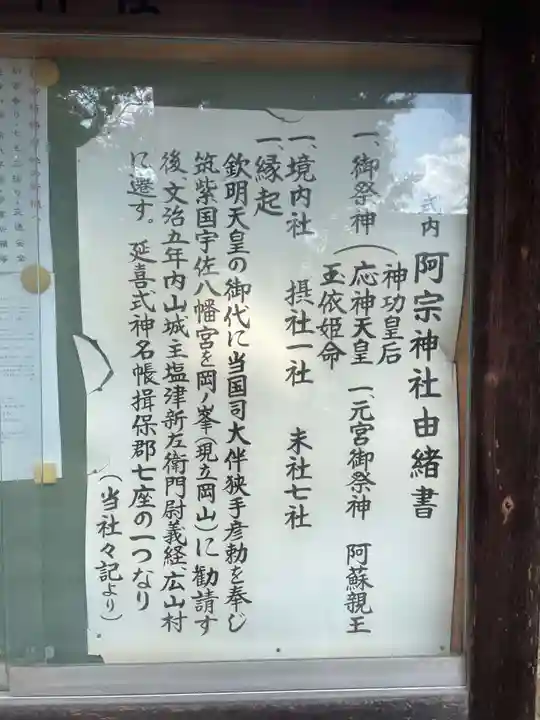 式内 阿宗神社由緒書
一、御祭神(神功皇后
応神天皇 一、元宮御祭神 阿蘇親王
玉依姫命
一、境内社 摂社一社 末社七社
一、縁起
欽明天皇の御代に当国司大伴狭手彦勅を奉じ
筑紫国宇佐八幡宮を岡ノ峯(現立岡山)に勧請す
後、文治五年内山城主塩津新左衛門尉義経、広山村
に遷す。 延喜式神名帳揖保郡七座の一つなり
(当社々記より)